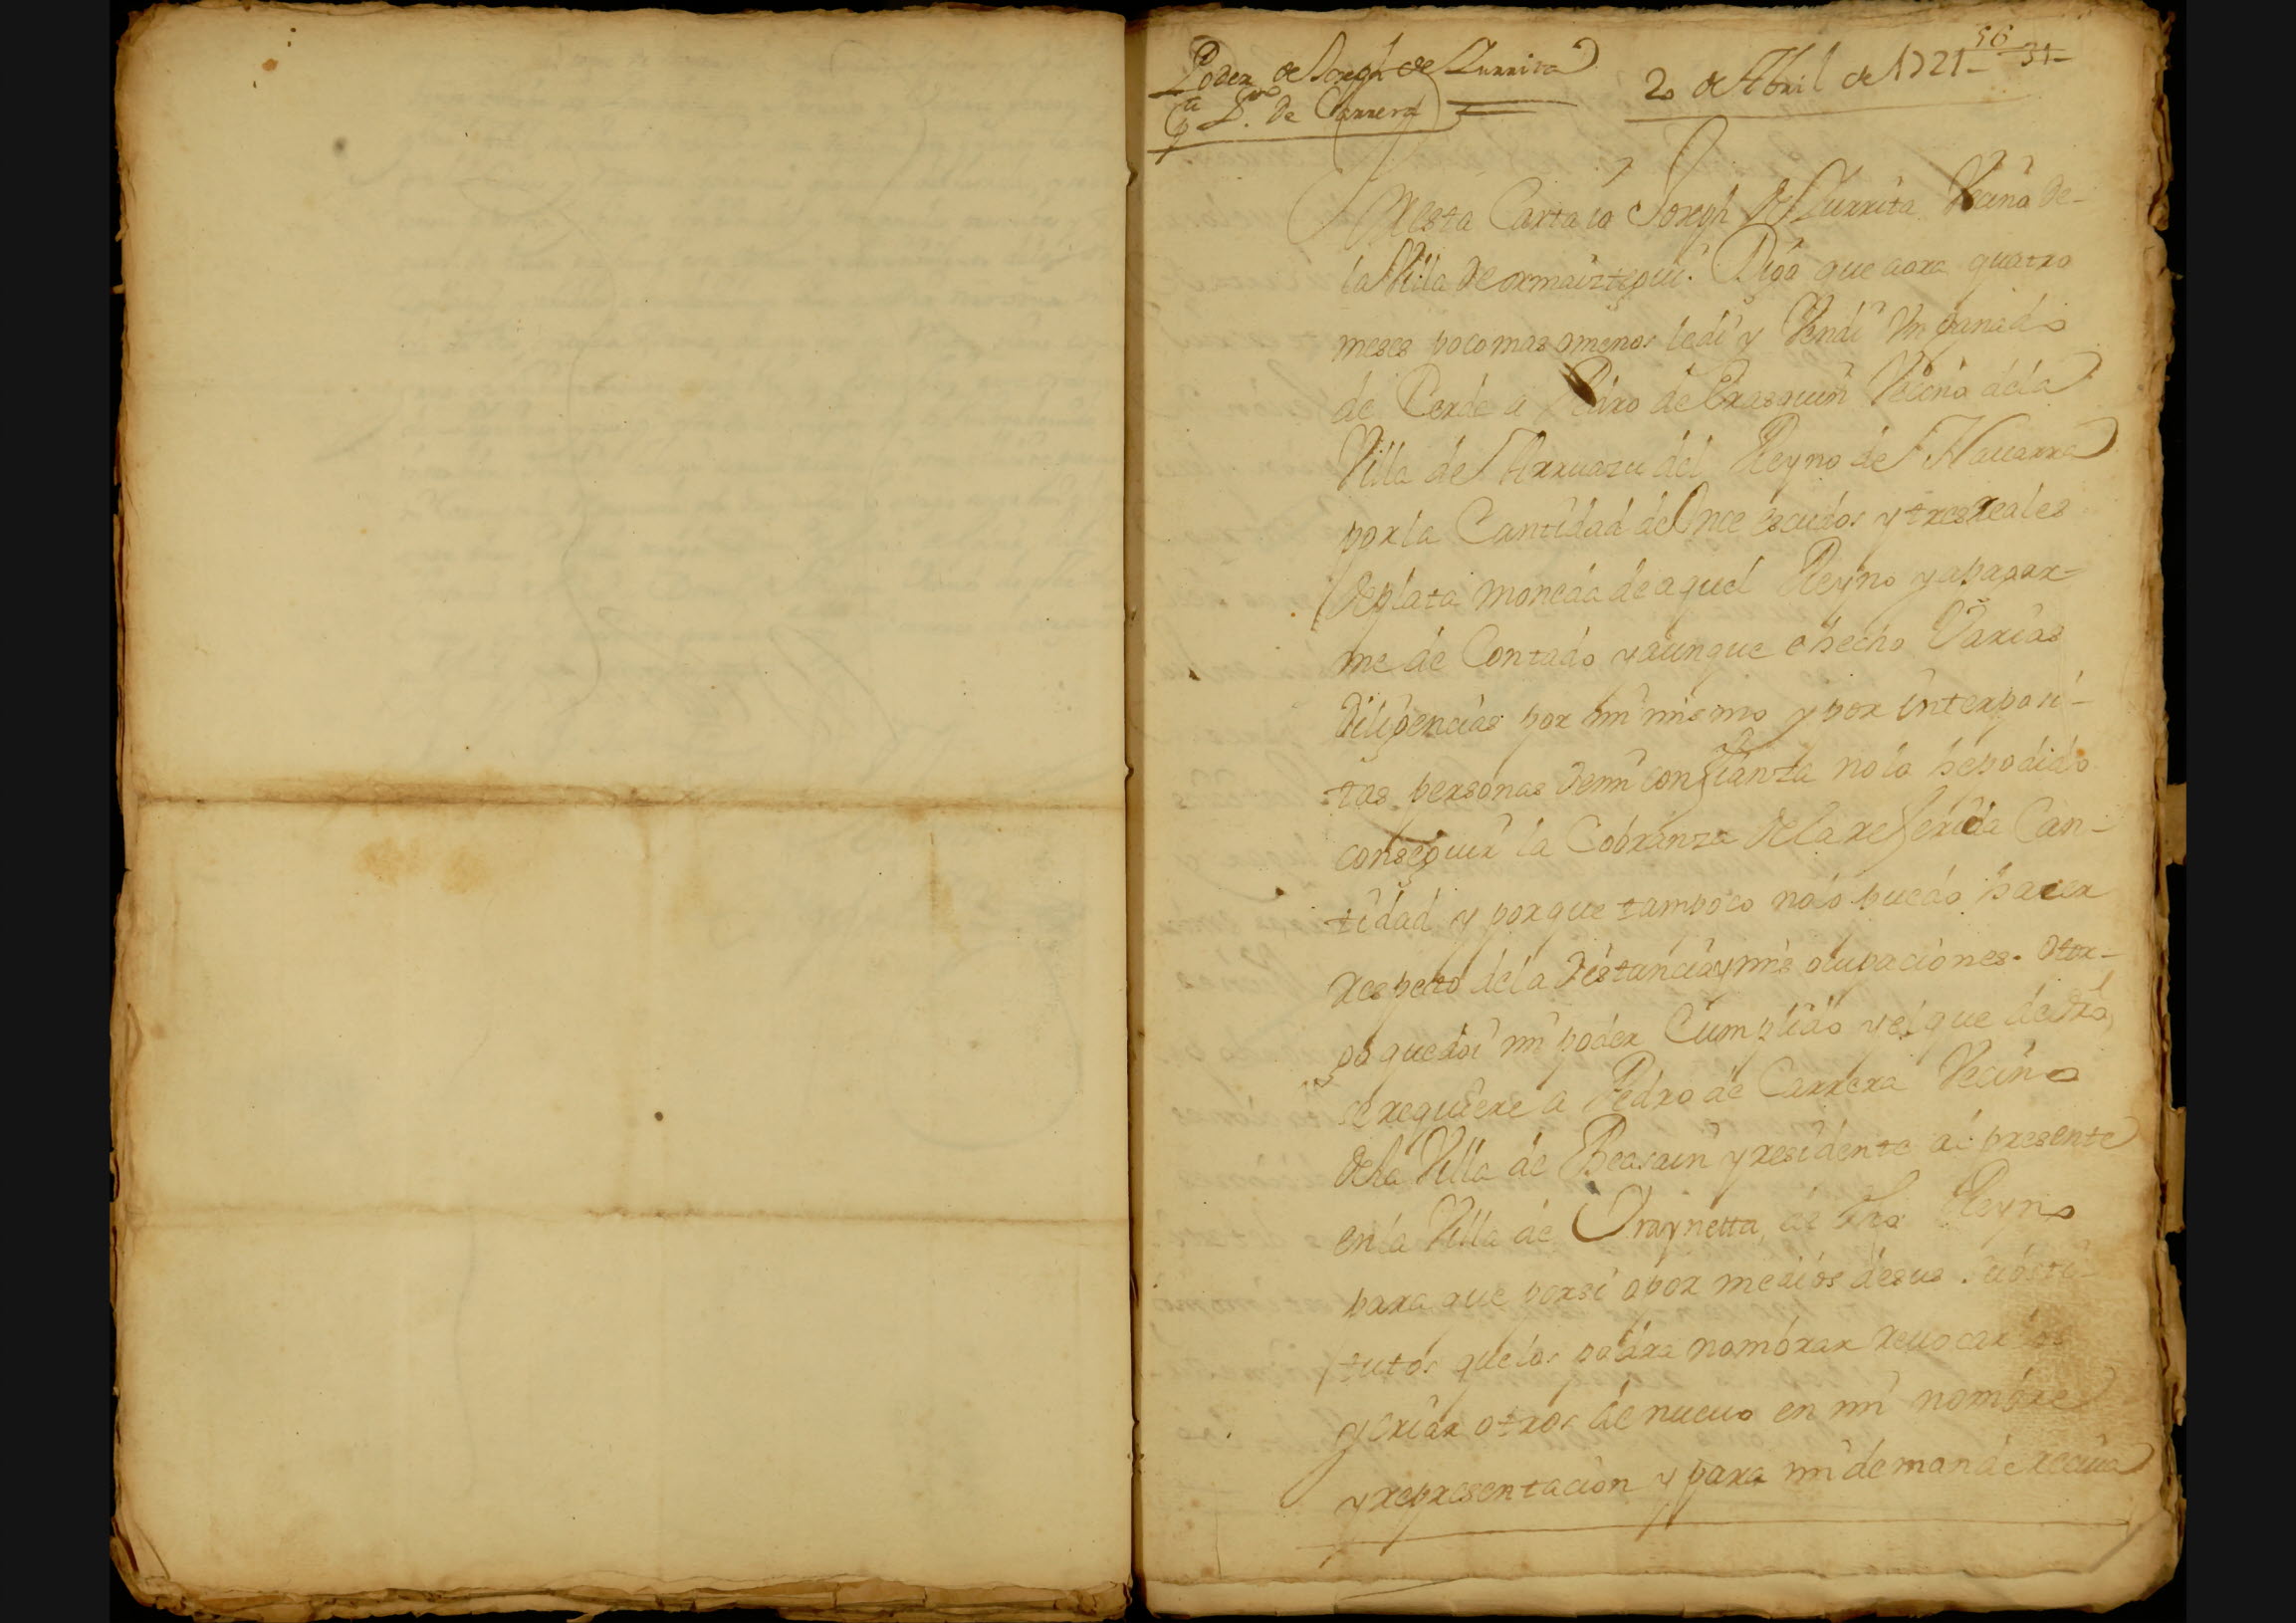 Poder de Joseph de Zurrita
Pª P.º de Carrera
2 de Abril de 1721 56 31
Por esta Carta io Joseph de Zurrita Vecino de-
la Villa de ormaiztegui. Digo que aora quatro
meses poco mas o menos le di y Vendi Un ganado
de Cerda a Pedro de Erasquin Vecino de la
Villa de Arruazu del Reyno de Nauarra
por la Cantidad de Once escudos y tres Reales
de plata moneda de aquel Reyno y a pagar-
me de Contado y aunque e hecho Varias
Diligencias por mi mismo y por interposi-
tas personas de mi confianza no lo he podido
conseguir la Cobranza de la referida Can-
tidad y porque tampoco nolo puedo hacer
Respecto dela Distancia y mis ocupaciones. otor-
go que doi mi poder Cumplido y el que de dro
se requiere a Pedro de Carrera Vecino
dela Villa de Beasain y residente al presente
en la Villa de Vraynetta, de dho Reyno
para que por si o por medios de sus susti-
tutos que los podra nombrar reuocar los
y criar otros de nueuo en mi nombre
y representacion y para mi demande reciua